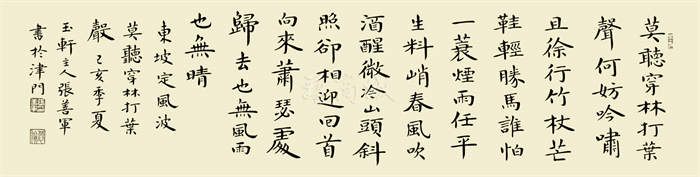 莫聽穿林打葉
聲何妨吟嘯
且徐行竹杖芒
鞋輕勝馬誰怕
一蓑煙雨任平
生料峭春風吹
酒醒微冷山頭斜
照卻相迎回首
向來蕭瑟處
歸去也無風雨
也無晴
東坡定風波
莫聽穿林打葉
聲 己亥季夏
玉軒主人張善軍
書於津門